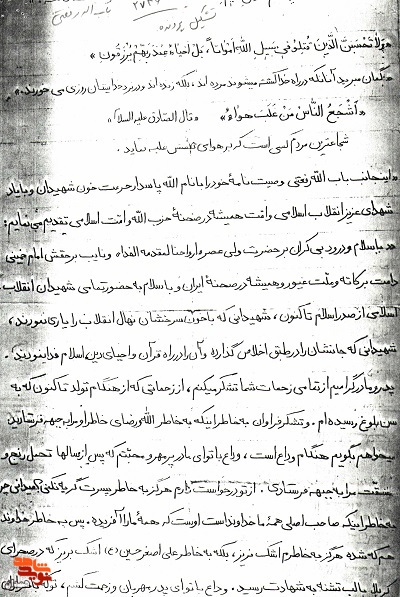 تشکیل پرونده
۲۷۴۶
باب اله رفعتی
«وَلا تَحْسَبَنَّ الَّذینَ قُتِلوُ فی سَبیلِ اللهِ اَمْواتاً، بَلْ اَحیاءٌ عِنْدَ رَبِّهِمْ یُرْزَقُونَ»
«گمان مبرید آنانکه در راه خدا کشته میشوند مرده اند، بلکه زنده اند و در نزد خدایشان روزی می خورند.»
«اَشْجَعُ النّاسِ مَنْ غَلَبَ هَواهُ» «قال الصادق علیه السلام»
شجاعترین مردم کسی است که بر هوای نفسش غلبه نماید.
«اینجانب باب الله رفعتی وصیت نامهٔ خود را با نام الله پاسدار حرمت خون شهیدان و با یاد
شهدای عزیز انقلاب اسلامی و امت همیشه در صحنهٔ حزب الله و امت اسلامی تقدیم می نمایم:
با سلام و درود بی کران بر حضرت ولی عصر و ارواحنا لمقدمه الفداء و نایب برحقش امام خمینی
دامت برکاته و ملت غیور و همیشه در صحنهٔ ایران و با سلام به حضور تمامی شهیدان انقلاب
اسلامی از صدر اسلام تاکنون، شهیدانی که با خون سرخشان نهال انقلاب را یاری نمودند،
شهیدانی که جانشان را در طبق اخلاص گذارده و آن را در راه قرآن و احیای دین اسلام فدا نمودند.
پدر و مادر گرامیم از تمامی زحمات شما تشکر میکنم، از زحماتی که از هنگام تولد تا کنون که به
سن بلوغ رسیده ام. و تشکر فراوان به خاطر اینکه به خاطر الله و رضای خاطر او مرا به جبهه فرستادید
میخواهم بگویم هنگام وداع است، وداع با تو ای مادر پر مهر و محبتم که پس از سالها تحمل رنج و
مشقت مرا به جبهه فرستادی. از تو درخواست دارم هرگز به خاطر پسرت گریه نکنی
به خاطر اینکه صاحب اصلی همهٔ ما خداوند است اوست که همهٔ ما را آفریده. پس به خاطر خداوند
هم که شده هرگز به خاطرم اشک نریز، بلکه به خاطر علی اصغر حسین (ع) اشک بریز که در صحرای
کربلا با لب تشنه به شهادت رسید. وداع با تو ای پدر مهربان و زحمت کشم،
نوید شاهد